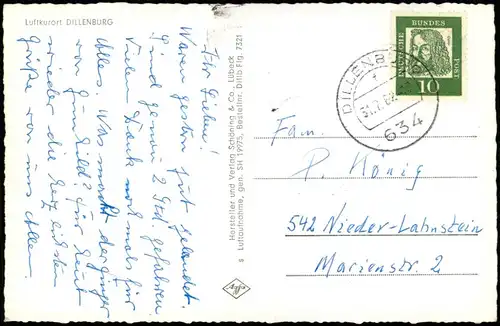 Luftkurort DILLENBURG
Ihr Lieben!
Waren gestern gut gelandet.
Sind genau 2 Std. gefahren
Vielen Dank nochmals für
Alles. Was macht der
von zum Bild? Für heut
wieder die herzlichsten
Grüße von uns Allen.
Hersteller und Verlag Schöning & Co., Lübeck
s Luftaufnahme, gen. SH 19975, Bestellnr. Dillb Flg. 7321
Agfa
DEUTSCHE BUNDESPOST
10
DILLENBURG
634
Fam.
P. König
542 Nieder-Lahnstein
Marienstr. 2